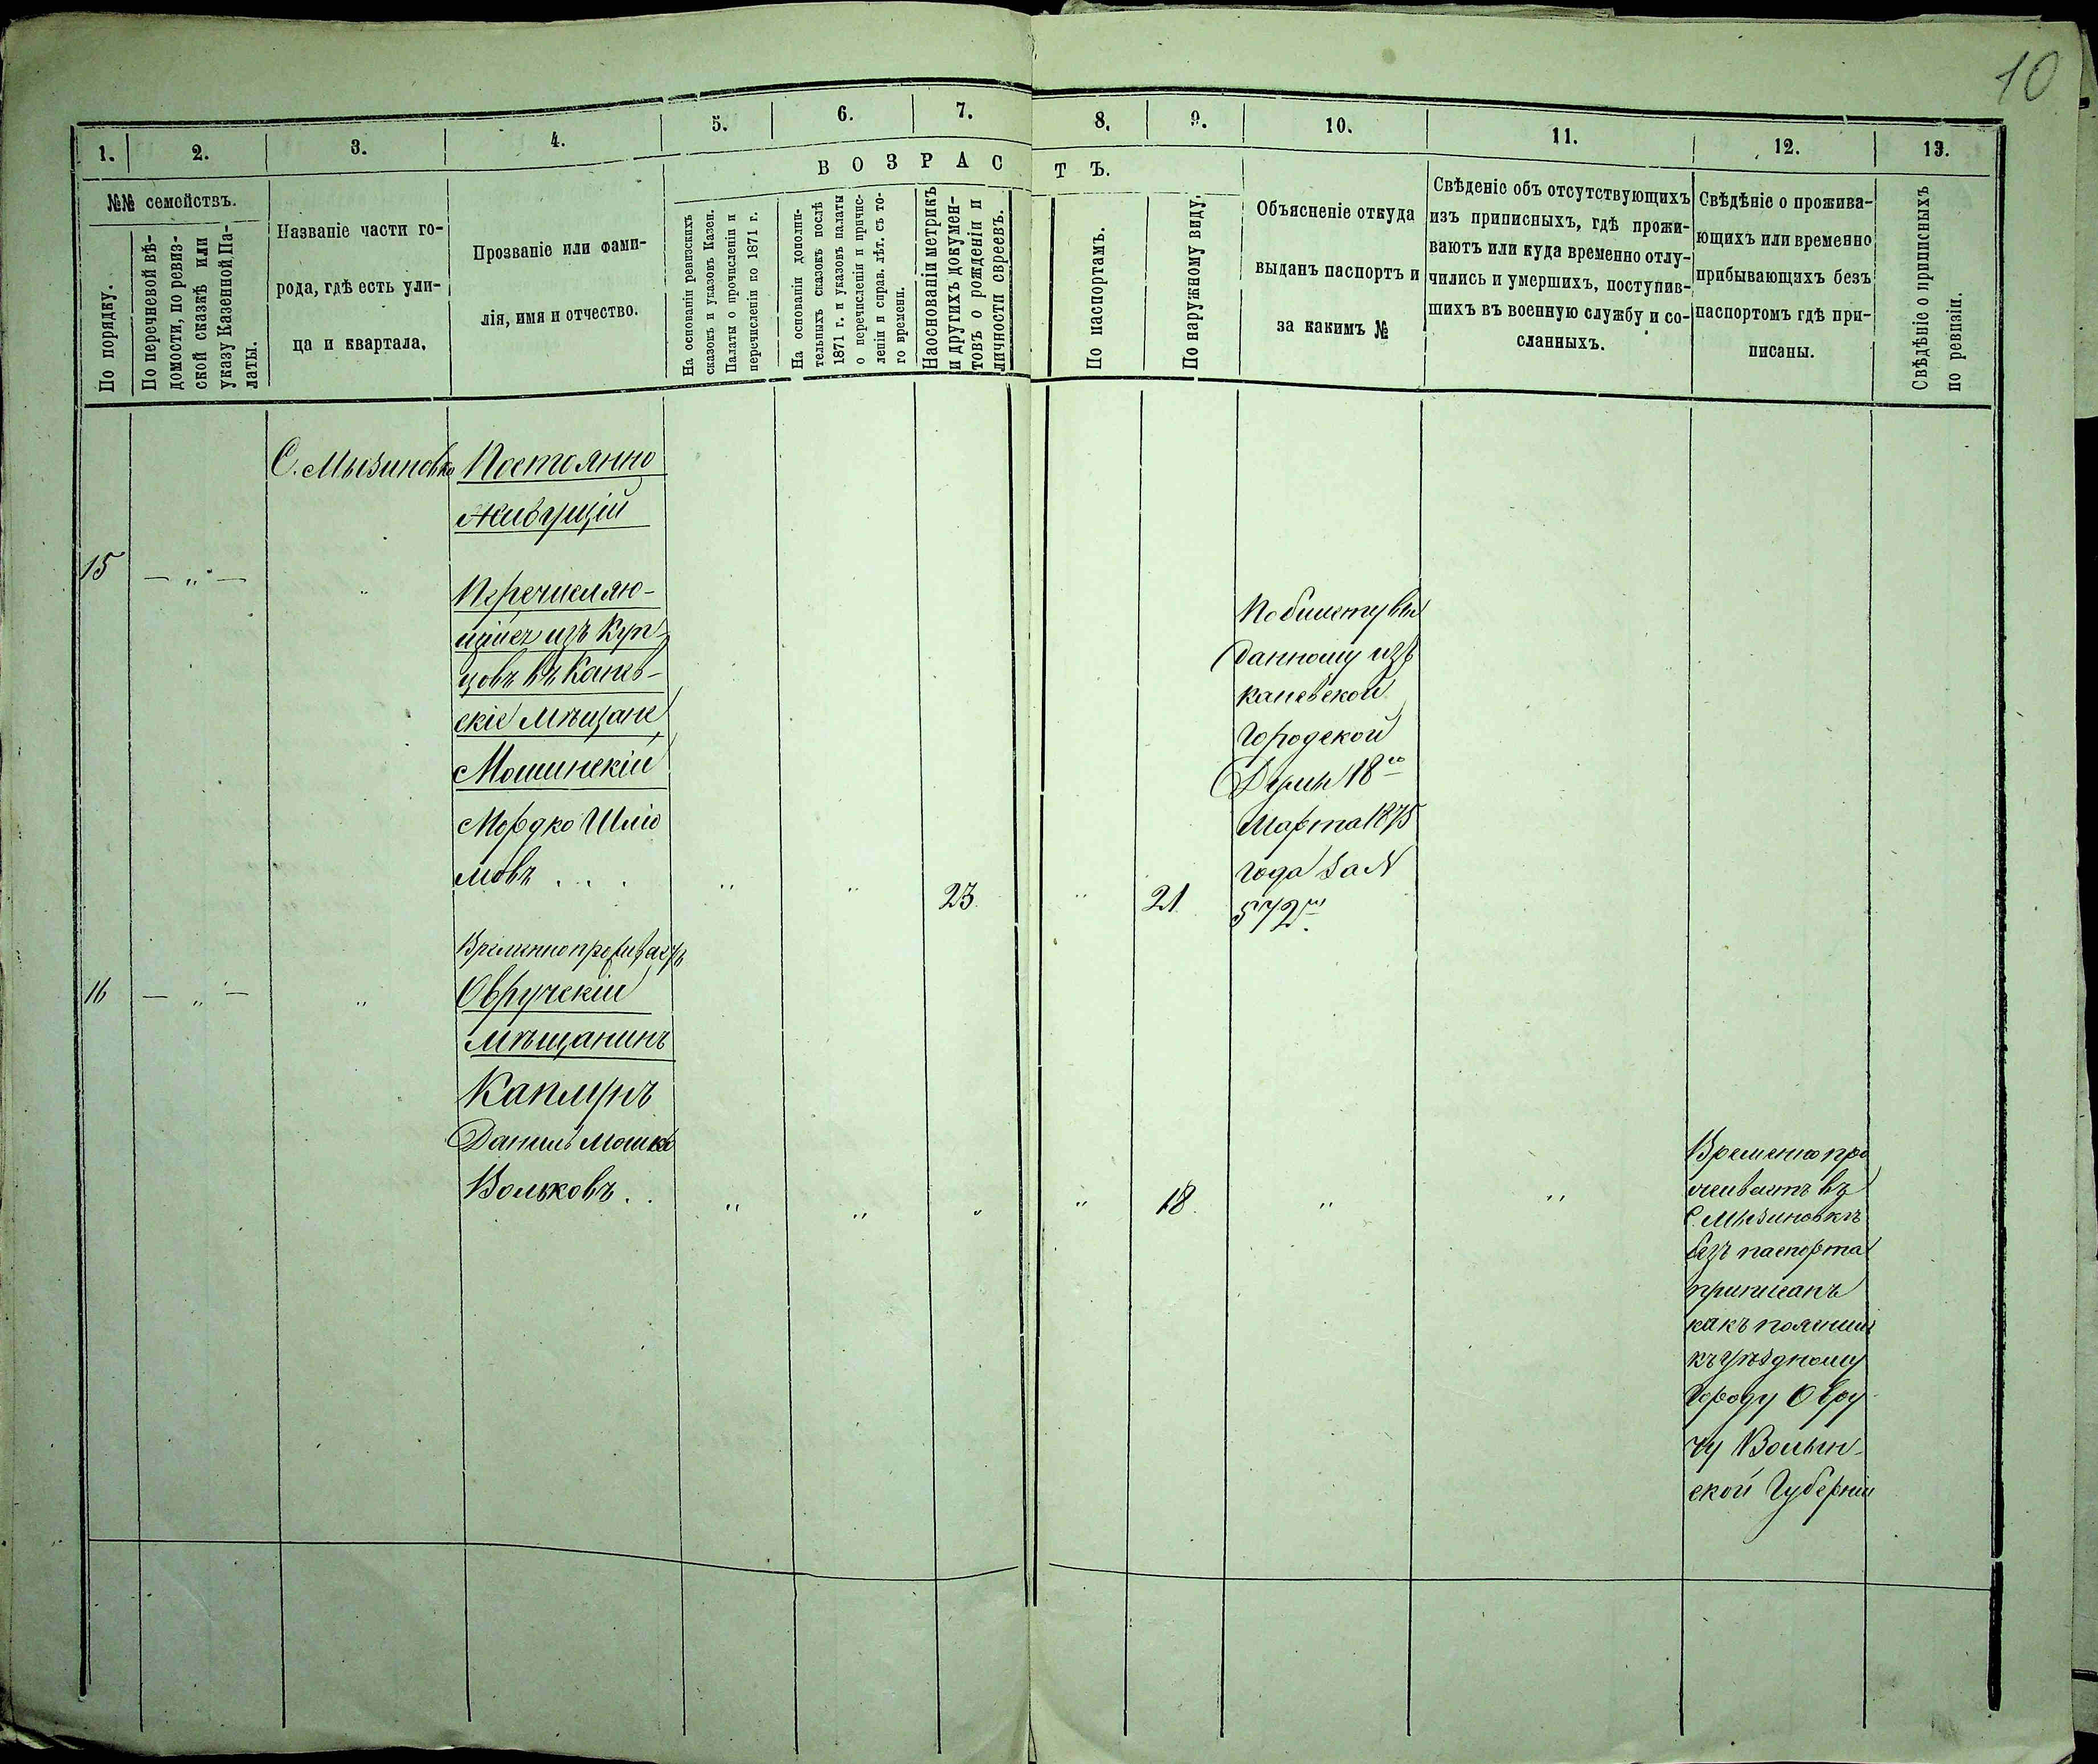 10
1. 2. 3. 4. 5. 6. 7. 8. 9. 10. 11. 12. 13.
ВОЗРАСТЪ.
№№ семействъ.
По порядку.
По перечневой вѣ-
домости, по ревиз-
ской сказкѣ или
указу Казенной Па-
латы.
Названіе части го-
рода, гдѣ есть ули-
ца и квартала.
Прозваніе или фами-
лія, имя и отчество.
На основаніи ревизскихъ
сказокъ и указовъ Казен.
Палаты о причисленіи и
перечисленіи по 1871 г.
На основаніи дополни-
тельныхъ сказокъ послѣ
1871 г. и указовъ палаты
о перечисленіи и причис-
леніи и справ. лѣт. съ то-
го времени.
На основаніи метрикъ
и другихъ докумен-
товъ о рожденіи и
личности евреевъ.
По паспортамъ.
По наружному виду.
Объясненіе откуда
выданъ паспортъ и
за какимъ №
Свѣденіе объ отсутствующихъ
изъ приписныхъ, гдѣ прожи-
ваютъ или куда временно отлу-
чились и умершихъ, поступив-
шихъ въ военную службу и со-
сланныхъ.
Свѣдѣніе о прожива-
ющихъ или временно
прибывающихъ безъ
паспортомъ гдѣ при-
писаны.
Свѣдѣніе о приписныхъ
по ревизіи.
С. Мызиновка
Постоянно
живущій
15 — „ — „
Перечисляю-
щійся изъ Куп-
цовъ въ Канев-
скіе Мѣщане
Мошинскій
Мордко Шліо
мовъ . . . „ „ 23. „ 21
По билету вы
данному изъ
каневской
Городской
Думы 18го
Марта 1875
года за N
572м.
Временно проживаетъ
16 — „ — „
Овручскій
мѣщанинъ
Каплунъ
Даниль Мошко
Вольковъ . . „ „ „ „ 18. „ „
Временно про
живаетъ въ
С. Мызиновкѣ
безъ паспорта
приписанъ
какъ
къ уѣздному
Городу Овру
чу Волын-
ской Губерніи